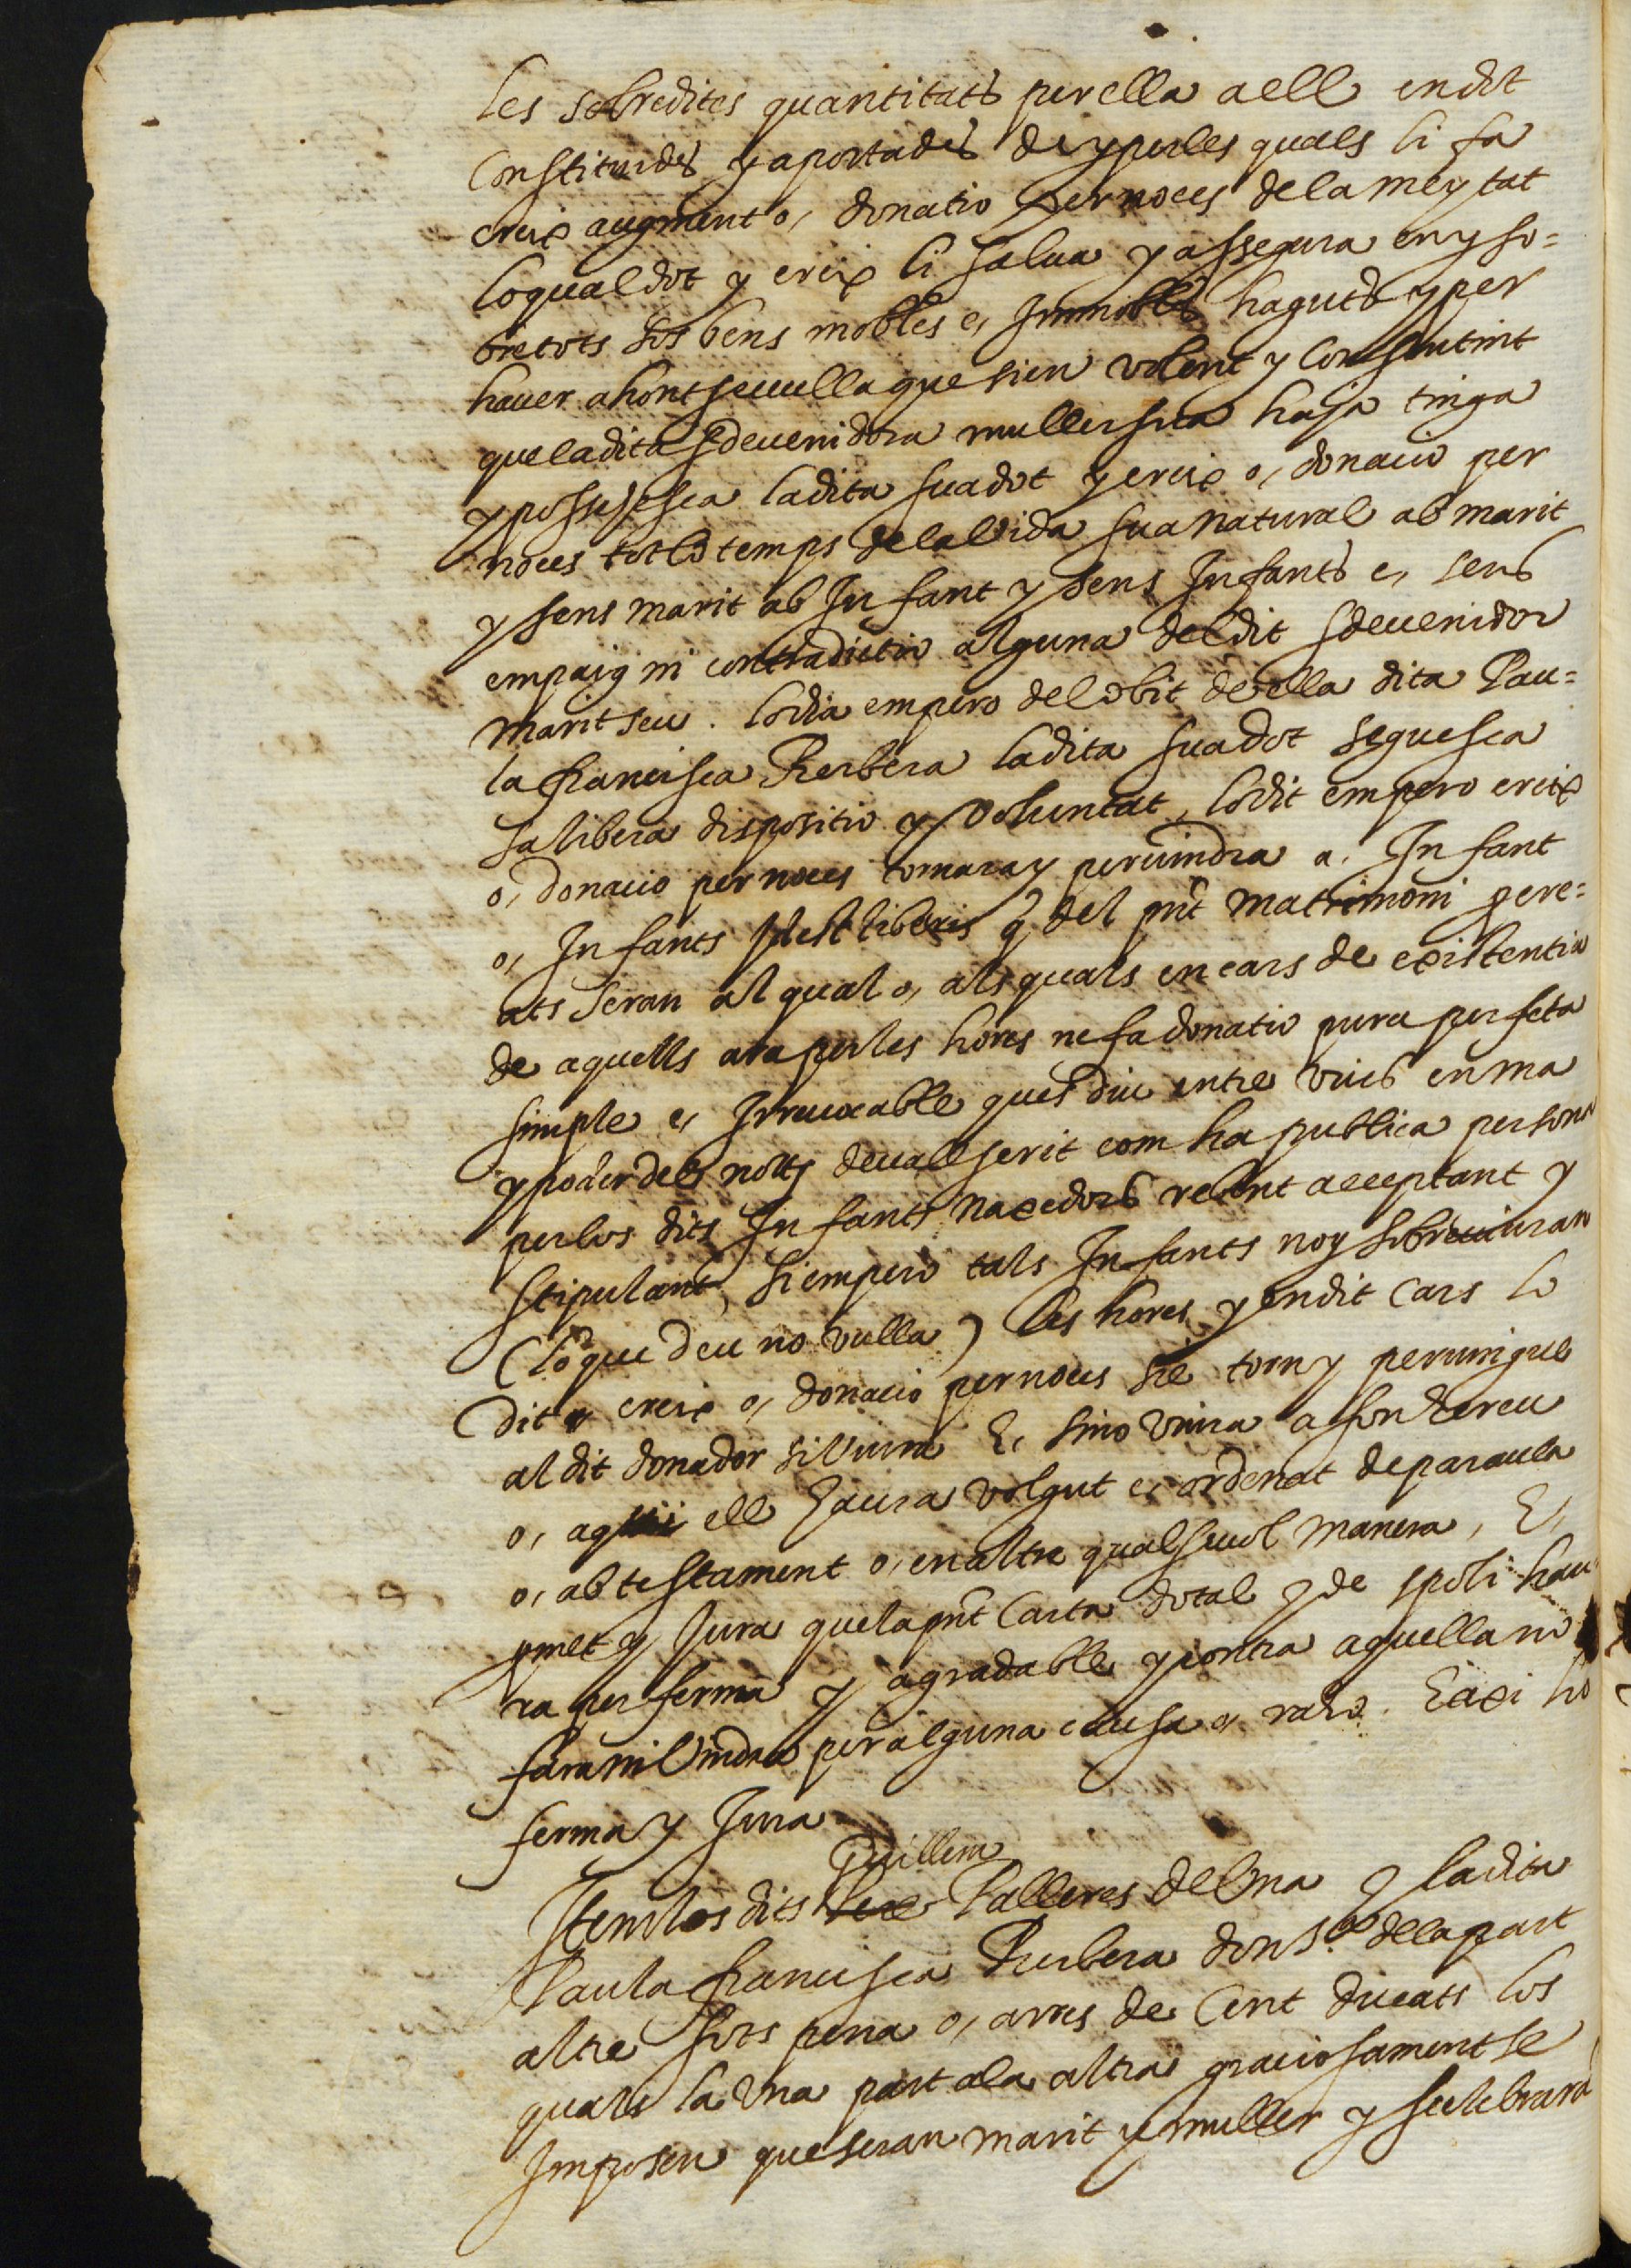 les sobredites quantitats per ella a ell en dot
constituides y aportades de y per les quals li fa
creix augment o, donatio per noces de la meytat
lo qual dot y creix li salva y assegura en y so=
bre tots sos bens mobles e, Immobles haguts y per
haver ahont sevulla que sien volent y consentint
que la dita sdevenidora muller sua haja tinga
y possehesca la dita sua dot y creix o, donacio per
noces tot lo temps de la vida sua natural ab marit
y sens marit ab Infant y sens Infants e, sens
empaig ni contradictio alguna del dit sdevenidor
marit seu. Lo dia empero del obit de ella dita Pau=
la francisca Rerbera la dita sua dot seguesca
sa libera dispositio y voluntat, lo dit empero creix
o, donacio per noces tornara y pervindra a. Infant
o, Infants Idest liberis q del pnt matrimoni pcre=
ats seran al qual o, als quals en cars de existentia
de aquells ara per les hores ne fa donatio pura perfeta
simple e, Irrevocable ques diu entre vius en ma
y poder del nots devall scrit com ha publica persona
per los dits Infants naxedors rebent acceptant y
stipulant, si empero tals Infants noy sobreviuran
(lo que deu no vulla) les hores y en dit cars lo
dit creix o, donacio per noces sie torn y pervingue
al dit donador si viura E, sino viura a son hereu
o, a qui ell haura volgut e, ordenat de paraula
o, ab testament o, en altre qualsevol manera, E,
pmet y Jura que la pnt Carta dotal y de spoli hau
ra per ferma y agradable y contra aquella no
fara ni vindra per alguna causa o, raho. E axi ho
ferma y Jura
Guillem
Item los dits Pere Palleres de Una y la dita
Paula francisca Rerbera donsa de la part
altre sots pena o, arres de Cent ducats los
quals la Una part a la altra graciosament se
Imposen que seran marit y muller y selebraran